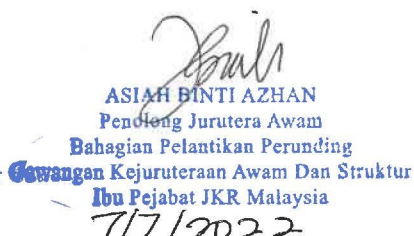 ASIAH BINTI AZHAN
Penolong Jurutera Awam
Bahagian Pelantikan Perunding
Cawangan Kejuruteraan Awam Dan Struktur
Ibu Pejabat JKR Malaysia
7/7/2022